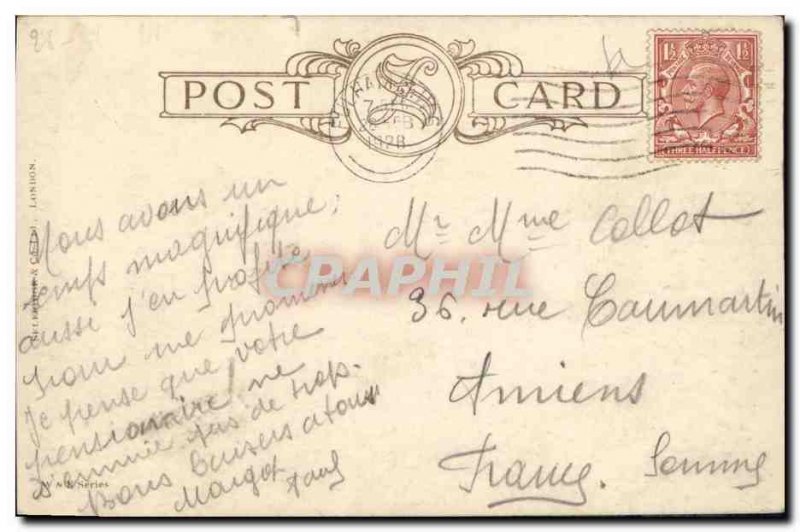 POST CARD
1½ 1½
THREE HALFPENCE
7
FEB
1928
LONDON.
Nous avons un
temps magnifique,
aussi j'en profite
pour me promener
Je pense que votre
pensionnaire ne
s'ennuie pas de trop.
Bons baisers à tous
Margot
W & K Series
Mr Mme Collot
36. rue Caumartin
Amiens
France. Somme
CPAPHIL